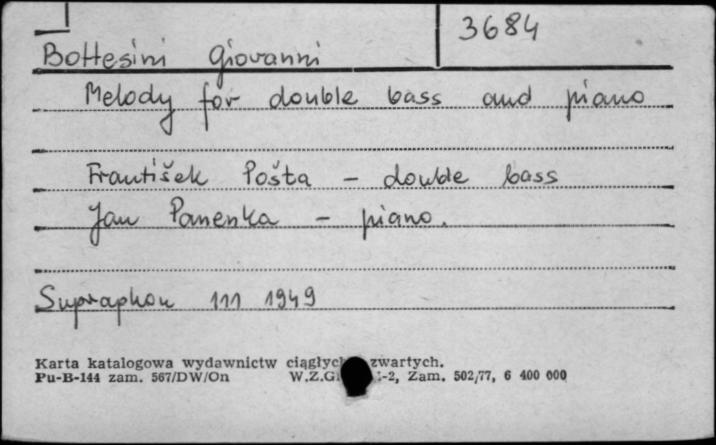 3684
Bottesini Giovanni
Melody for double bass and piano
František Pošta - double bass
Jan Panenka - piano.
Supraphon 111 1949
Karta katalogowa wydawnictw ciągłych zwartych.
Pu-B-144 zam. 567/DW/On W.Z.G. -2, Zam. 502/77, 6 400 000